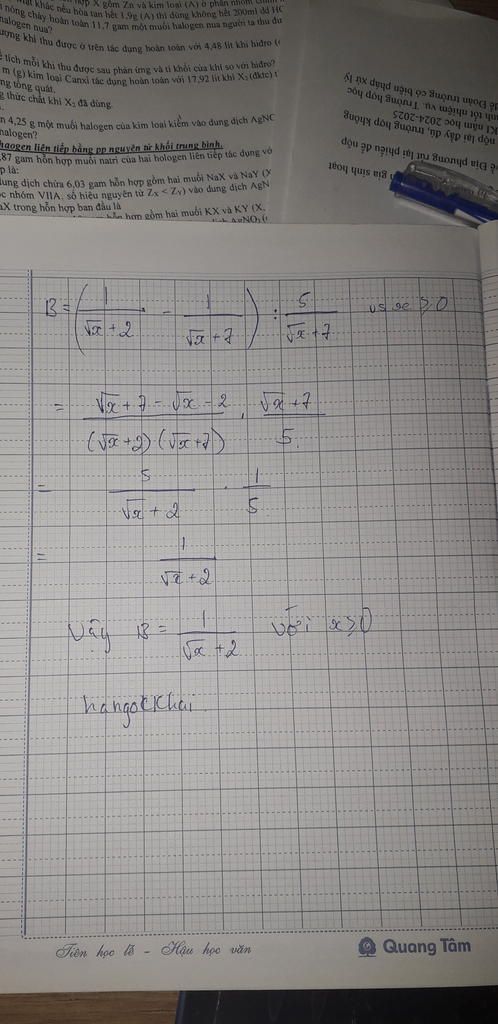 hợp X gồm Zn và kim loại (A) ở phân nhóm chính
mặt khác nếu hòa tan hết 1,9g (A) thì dùng không hết 200ml dd HC
nóng chảy hoàn toàn 11,7 gam một muối halogen người ta thu đư
halogen nua?
lượng khí thu được ở trên tác dụng hoàn toàn với 4,48 lít khí hiđro (
ể tích mỗi khí thu được sau phản ứng và tỉ khối của khí so với hiđro?
m (g) kim loại Canxi tác dụng hoàn toàn với 17,92 lít khí X₂ (đktc) t
ng tổng quát.
g thức chất khí X₂ đã dùng.
n 4,25 g một muối halogen của kim loại kiềm vào dung dịch AgNO
halogen?
haogen liên tiếp bằng pp nguyên tử khối trung bình.
,87 gam hỗn hợp muối natri của hai hologen liên tiếp tác dụng vớ
p là:
dung dịch chứa 6,03 gam hỗn hợp gồm hai muối NaX và NaY (X
ộc nhóm VIIA, số hiệu nguyên tử Zₓ < Zᵧ) vào dung dịch AgN
aX trong hỗn hợp ban đầu là
hỗn hợp gồm hai muối KX và KY (X,
dịch AgNO₃ (
ề Đoàn trường có biện pháp xử lý
nh tốt nhiệm vụ. Trường hợp học
KI năm học 2024-2025
nộp lại đầy đủ, trường hợp không
ề Địa phương rút lại phiếu để nộp
gia sinh hoạt
B = (1/(√x + 2) - 1/(√x + 7)) : 5/(√x + 7) vs x ≥ 0
= (√x + 7 - √x - 2)/((√x + 2)(√x + 7)) . (√x + 7)/5
= 5/(√x + 2) . 1/5
= 1/(√x + 2)
Vậy B = 1/(√x + 2) với x ≥ 0
hangokkhai
Tiên học lễ - Hậu học văn
Quang Tâm